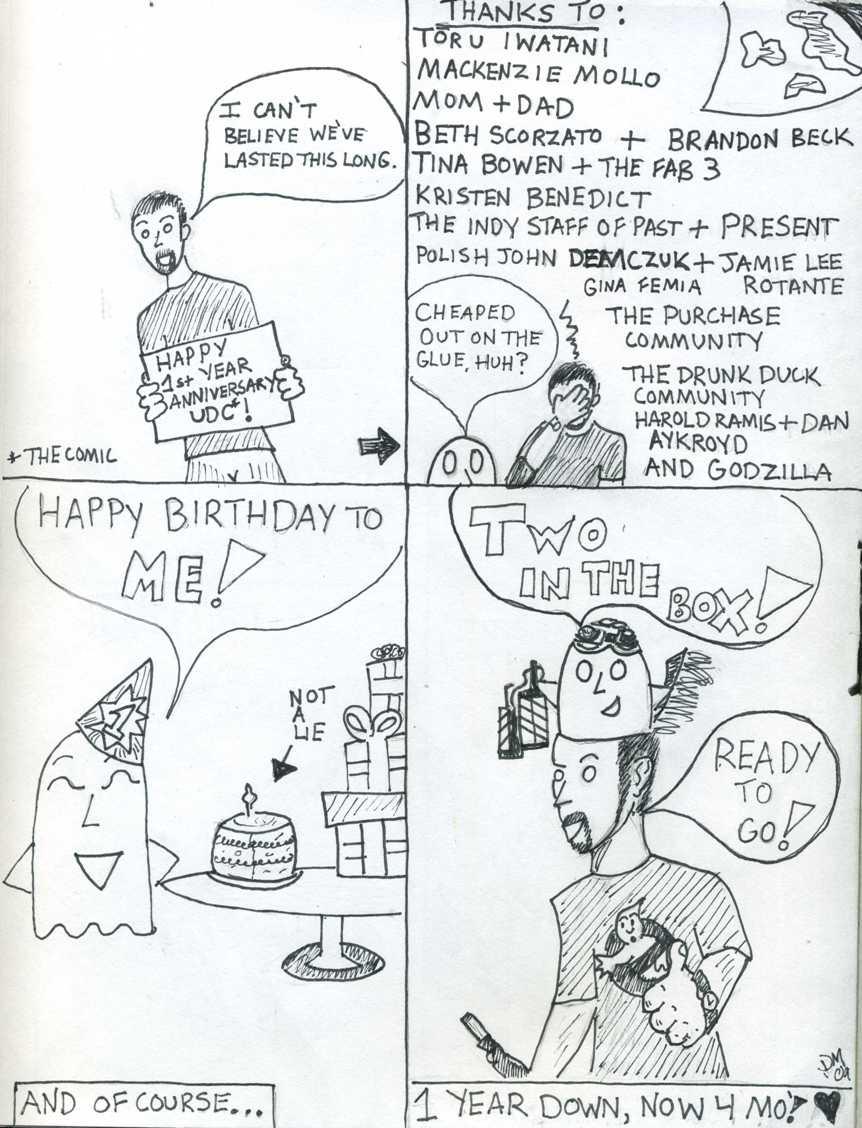 I CAN'T
BELIEVE WE'VE
LASTED THIS LONG.
HAPPY
1st YEAR
ANNIVERSARY
UDC*!
* THE COMIC
THANKS TO:
TŌRU IWATANI
MACKENZIE MOLLO
MOM + DAD
BETH SCORZATO + BRANDON BECK
TINA BOWEN + THE FAB 3
KRISTEN BENEDICT
THE INDY STAFF OF PAST + PRESENT
POLISH JOHN DEMCZUK + JAMIE LEE
GINA FEMIA ROTANTE
THE PURCHASE
COMMUNITY
THE DRUNK DUCK
COMMUNITY
HAROLD RAMIS + DAN
AYKROYD
AND GODZILLA
CHEAPED
OUT ON THE
GLUE, HUH?
HAPPY BIRTHDAY TO
ME!
1
NOT
A
LIE
AND OF COURSE...
TWO
IN THE
BOX!
READY
TO
GO!
DM
09
1 YEAR DOWN, NOW 4 MO!